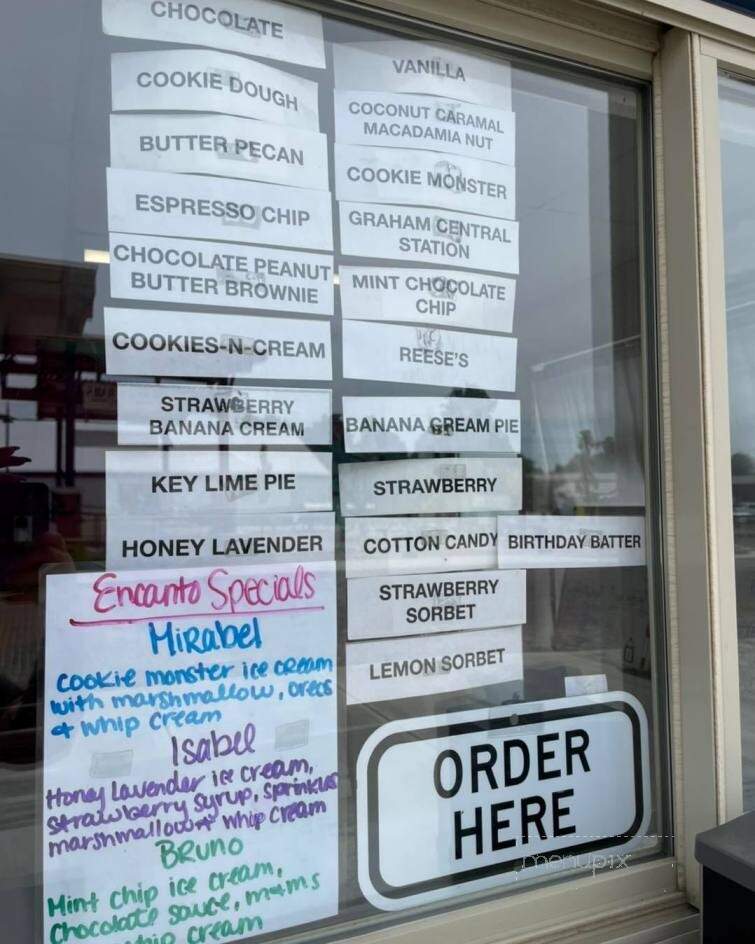 CHOCOLATE
COOKIE DOUGH
BUTTER PECAN
ESPRESSO CHIP
CHOCOLATE PEANUT
BUTTER BROWNIE
COOKIES-N-CREAM
STRAWBERRY
BANANA CREAM
KEY LIME PIE
HONEY LAVENDER
VANILLA
COCONUT CARAMAL
MACADAMIA NUT
COOKIE MONSTER
GRAHAM CENTRAL
STATION
MINT CHOCOLATE
CHIP
REESE'S
BANANA CREAM PIE
STRAWBERRY
COTTON CANDY
BIRTHDAY BATTER
STRAWBERRY
SORBET
LEMON SORBET
Encanto Specials
Mirabel
Cookie monster ice cream
with marshmallow, oreos
& whip cream
Isabel
Honey Lavender ice cream,
strawberry syrup, sprinkles
marshmallow & whip cream
Bruno
Mint chip ice cream,
Chocolate sauce, m&ms
whip cream
ORDER
HERE
menupix